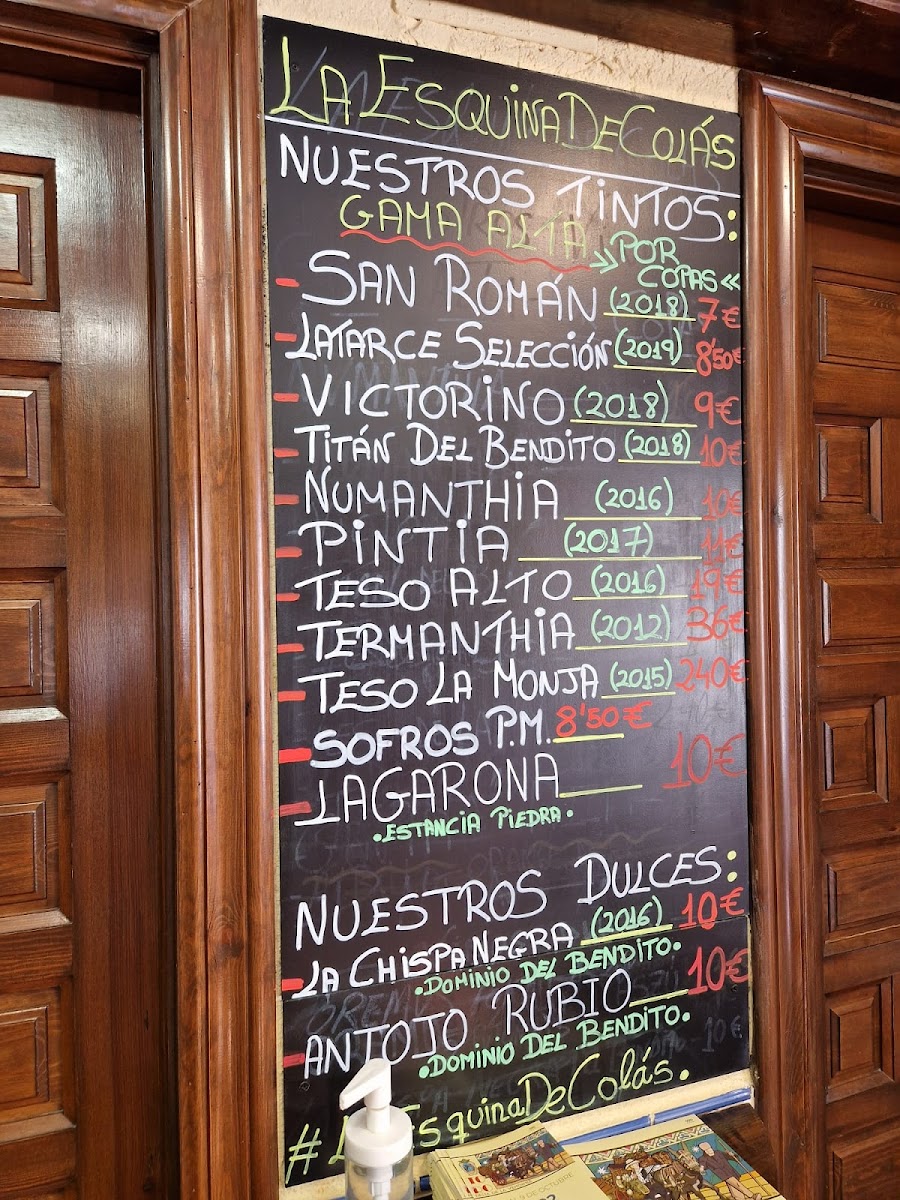 La Esquina De Colás
NUESTROS TINTOS:
GAMA ALTA
POR
COPAS «
SAN ROMÁN (2018) 7€
LATARCE SELECCIÓN (2019) 8'50€
VICTORINO (2018) 9€
TITÁN DEL BENDITO (2018) 10€
NUMANTHIA (2016) 10€
PINTIA (2017) 11€
TESO ALTO (2016) 19€
TERMANTHIA (2012) 36€
TESO LA MONJA (2015) 240€
SOFROS P.M. 8'50€
LAGARONA 10€
•ESTANCIA PIEDRA•
NUESTROS DULCES:
LA CHISPA NEGRA (2016) 10€
•DOMINIO DEL BENDITO•
ANTOJO RUBIO 10€
•DOMINIO DEL BENDITO•
#LaEsquinaDeColás.